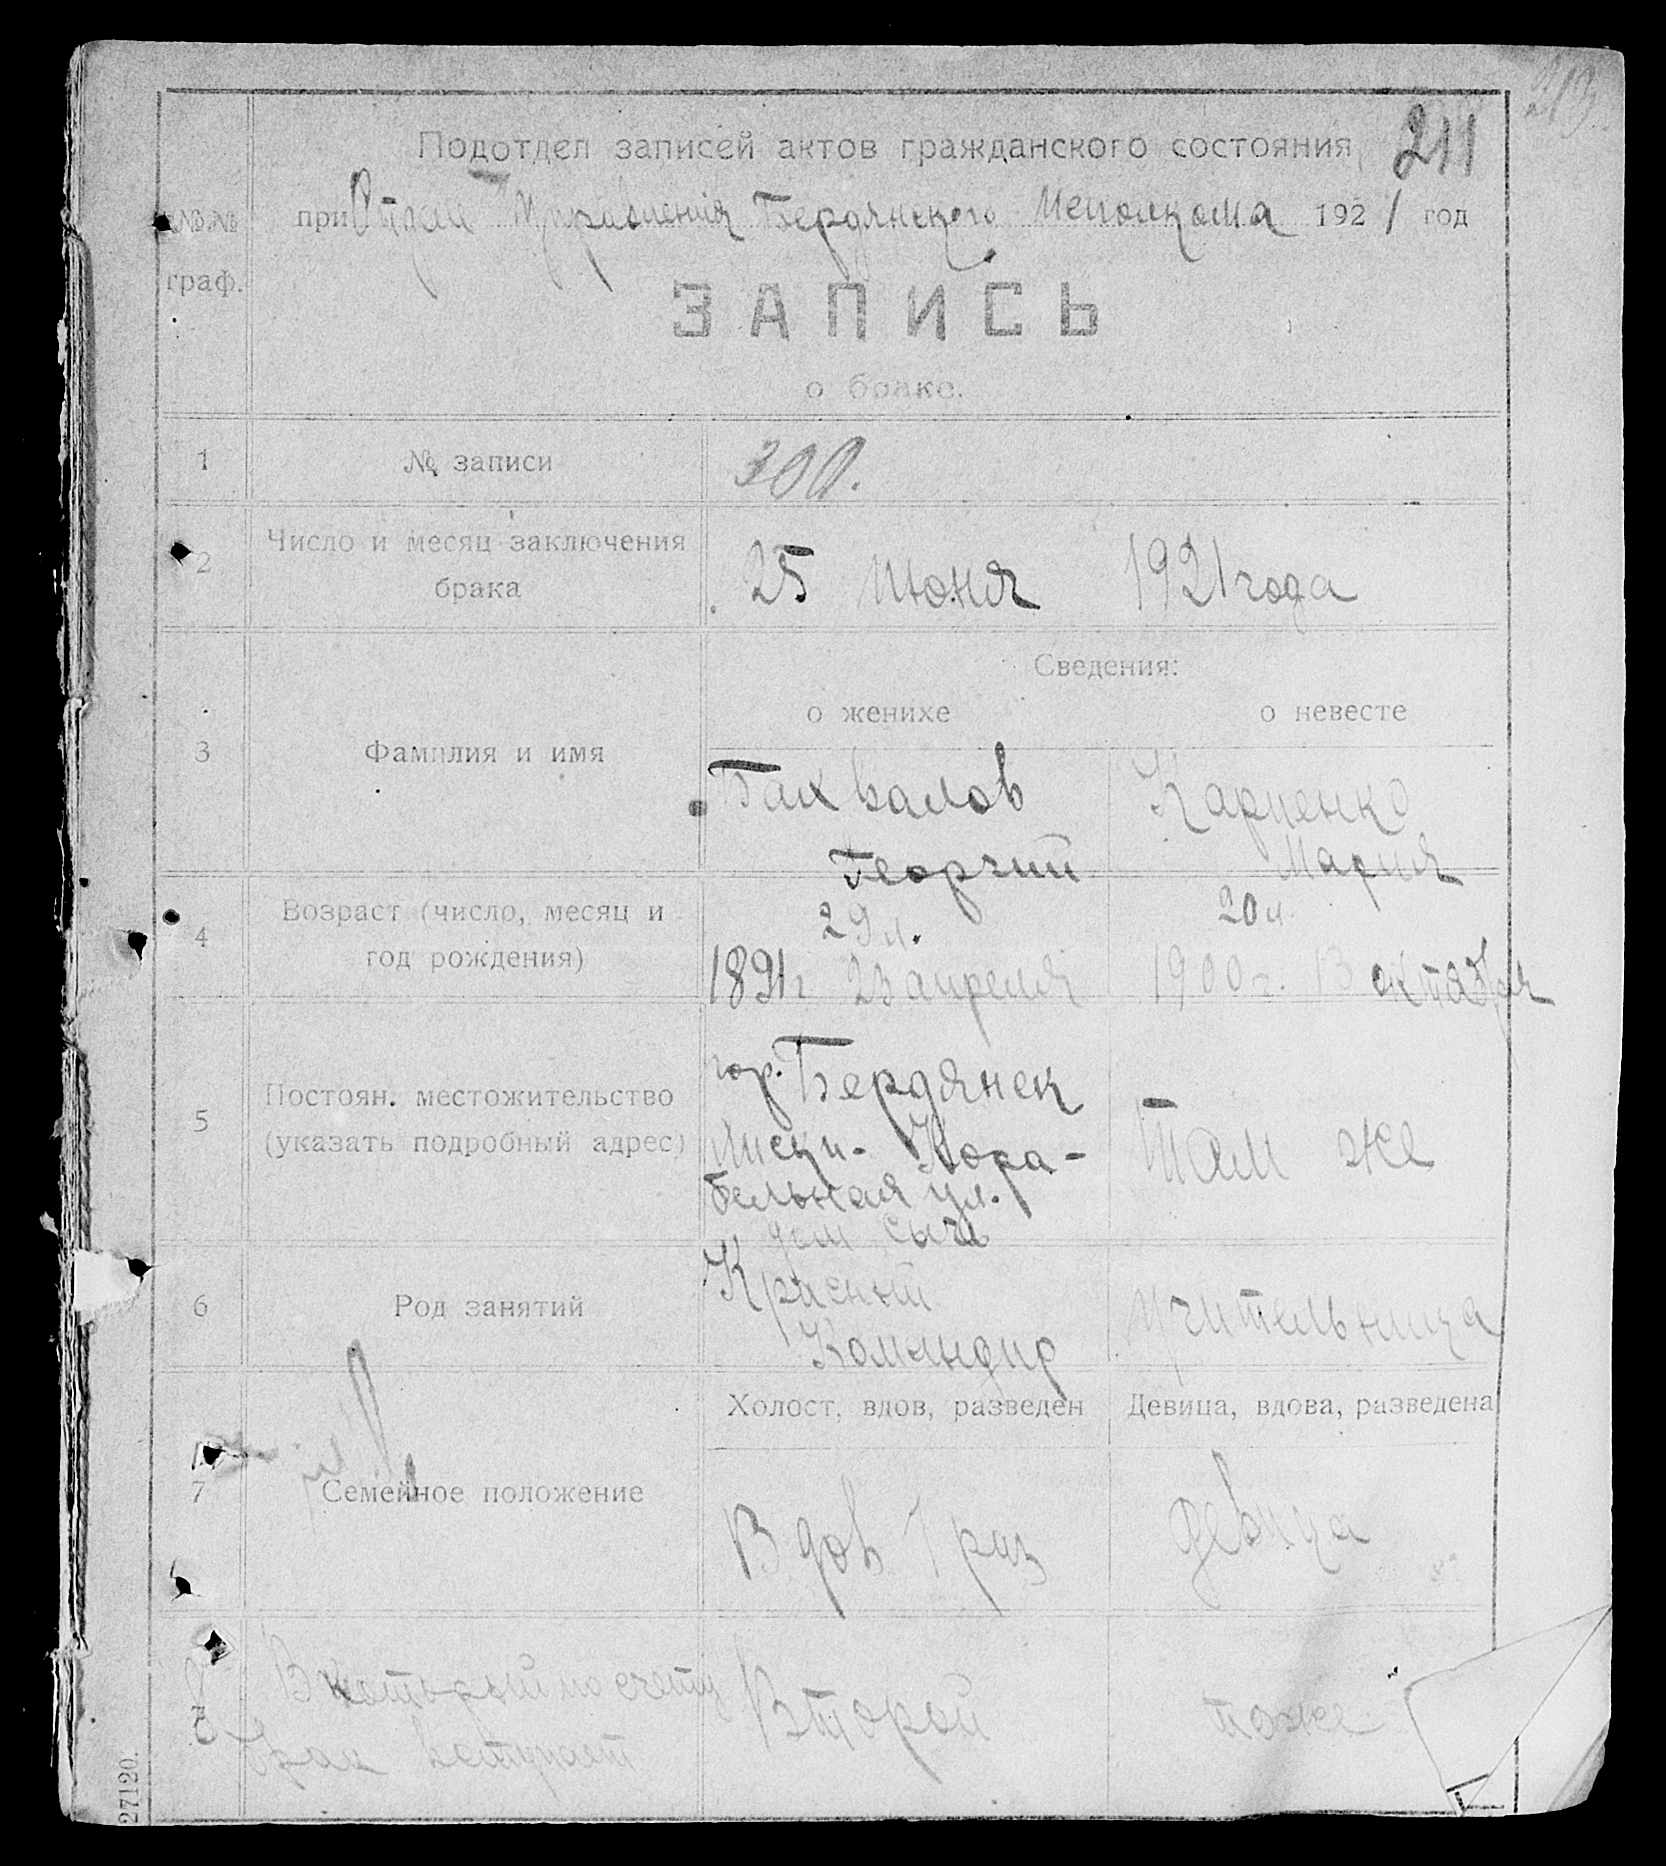 213
Подотдел записей актов гражданского состояния 211
при Отделе Управления Бердянского Исполкома 1921 год
№№
граф.
ЗАПИСЬ
о браке.
1 № записи 300.
2 Число и месяц заключения
брака
25 июня 1921 года
Сведения:
о женихе о невесте
3 Фамилия и имя
Бахвалов Карпенко
Георгий Мария
4 Возраст (число, месяц и
год рождения)
29 л. 20 л.
1891 г 23 апреля 1900 г. 13 октября
5 Постоян. местожительство
(указать подробный адрес)
гор. Бердянск
Лиски - Кора-
бельная ул.
дом Сыча
Там же
6 Род занятий
Красный
Командир
учительница
Холост, вдов, разведен Девица, вдова, разведена
7 Семейное положение
Вдов 1 раз девица
8 В который по счету
брак вступает
Второй тоже
27120.